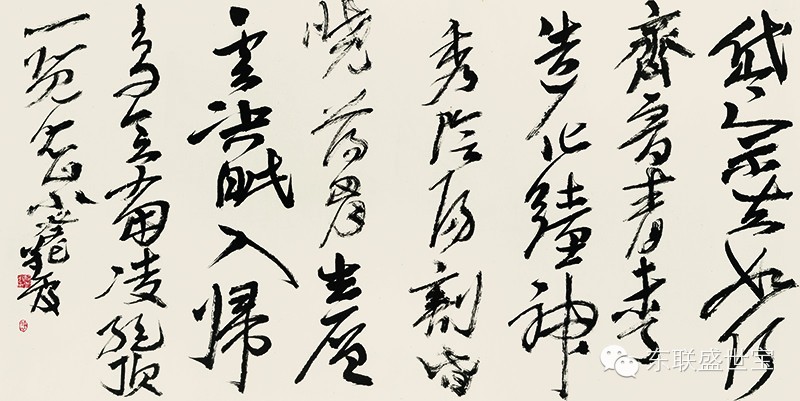 岱宗夫如何
齊魯青未了
造化鍾神
秀陰陽割昏
曉蕩胸生層
雲決眦入帰
鳥會當凌絕頂
一覽众山小
东联盛世宝